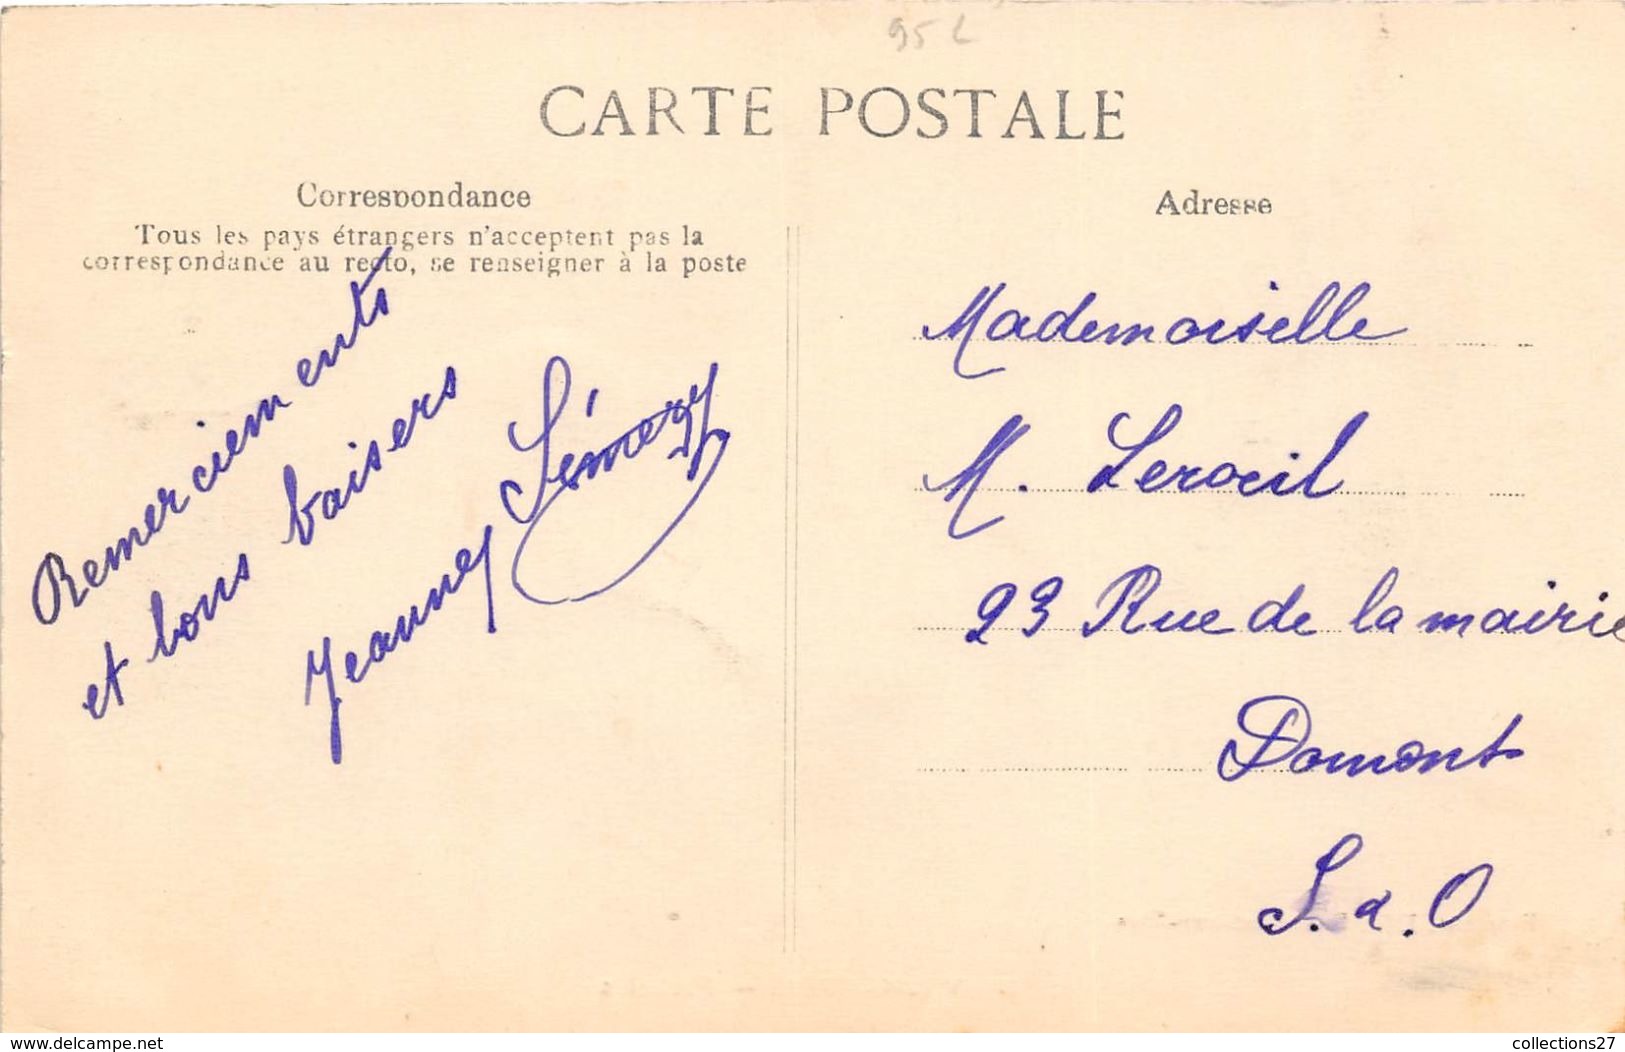 95 L
CARTE POSTALE
Correspondance
Tous les pays étrangers n'acceptent pas la
correspondance au recto, se renseigner à la poste
Remerciements
et bons baisers
Jeanne Sémery
Adresse
Mademoiselle
M. Leroeil
23 Rue de la mairie
Domont
S. & O
www.delcampe.net
collections27